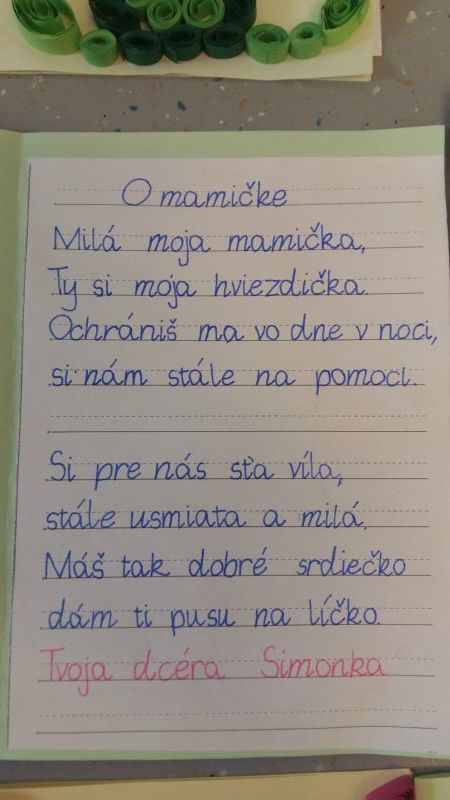 O mamičke
Milá moja mamička,
Ty si moja hviezdička.
Ochrániš ma vo dne v noci,
si nám stále na pomoci.
Si pre nás sťa víla,
stále usmiata a milá.
Máš tak dobré srdiečko
dám ti pusu na líčko.
Tvoja dcéra Simonka